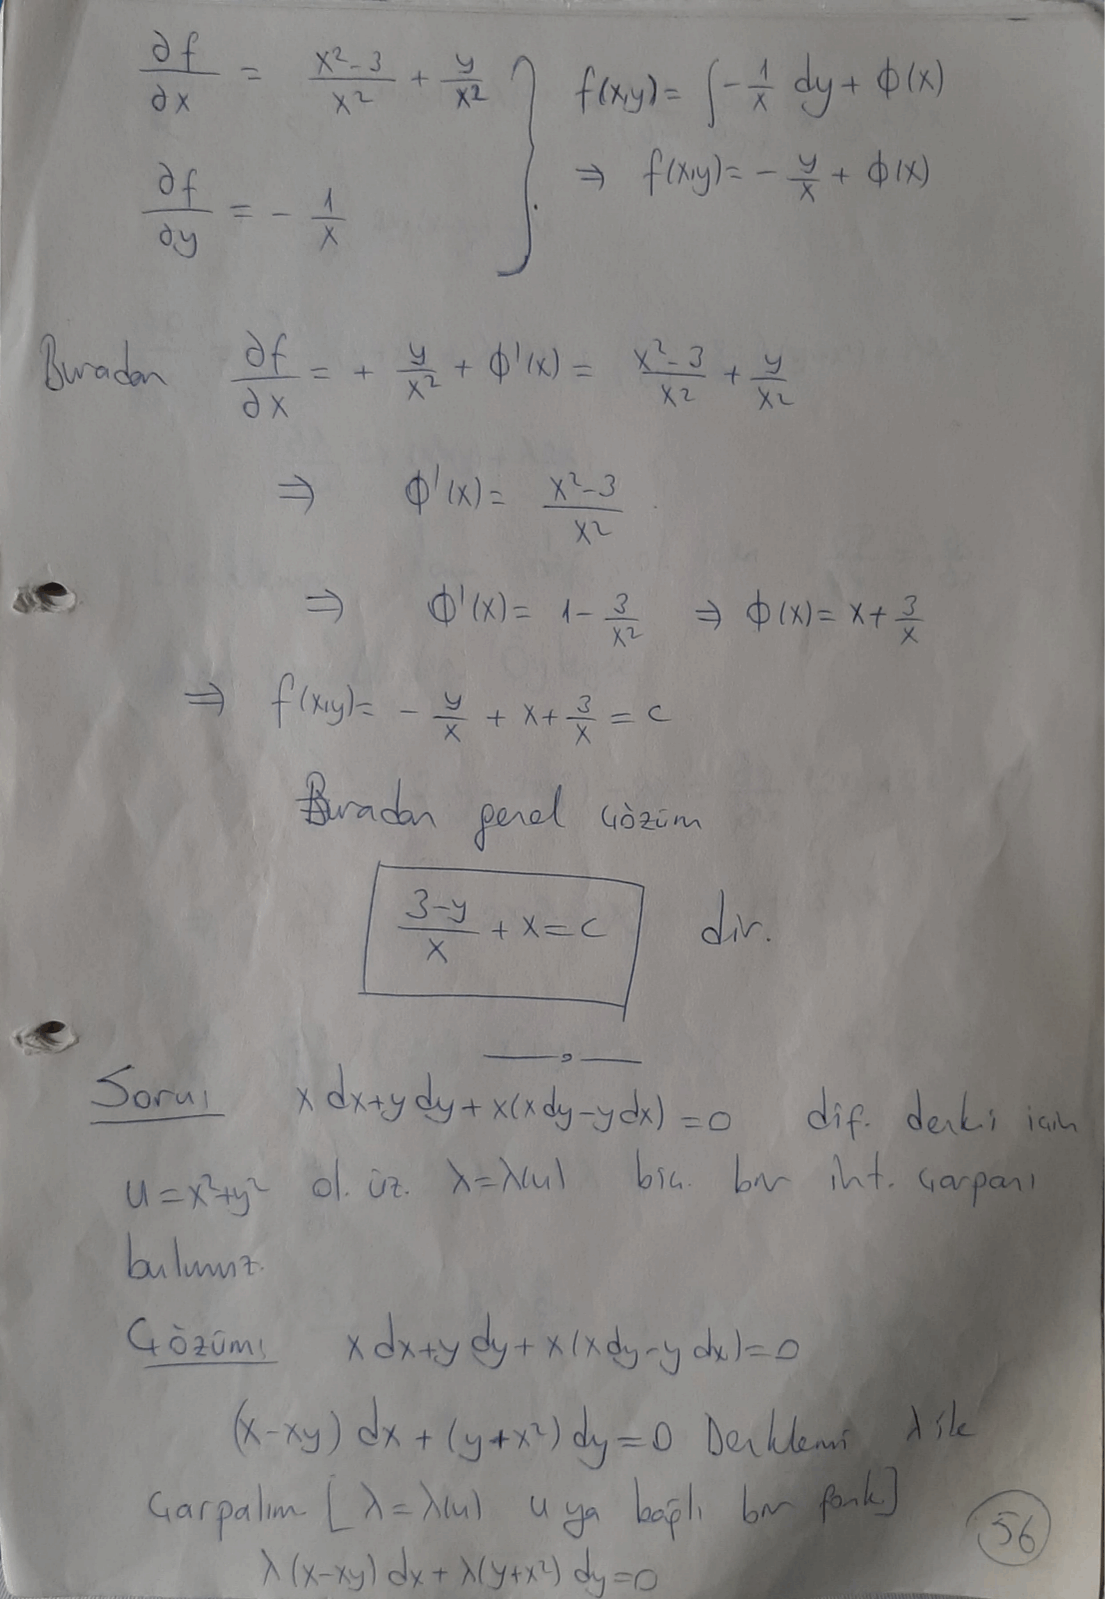 ∂f/∂x = (x²-3)/x² + y/x² } f(x,y) = ∫ -1/x dy + ϕ(x)
∂f/∂y = - 1/x ⇒ f(x,y) = - y/x + ϕ(x)
Buradan ∂f/∂x = + y/x² + ϕ'(x) = (x²-3)/x² + y/x²
⇒ ϕ'(x) = (x²-3)/x²
⇒ ϕ'(x) = 1 - 3/x² ⇒ ϕ(x) = x + 3/x
⇒ f(x,y) = - y/x + x + 3/x = c
Buradan genel çözüm
(3-y)/x + x = c dir.
Soru: x dx + y dy + x(x dy - y dx) = 0 dif. denki için
u = x² + y² ol. üz. λ = λ(u) biç. bir int. çarpanı
bulunuz.
Çözüm: x dx + y dy + x(x dy - y dx) = 0
(x - xy) dx + (y + x²) dy = 0 Denklemi λ ile
çarpalım [λ = λ(u) u ya bağlı bir fonk.]
λ(x - xy) dx + λ(y + x²) dy = 0
56